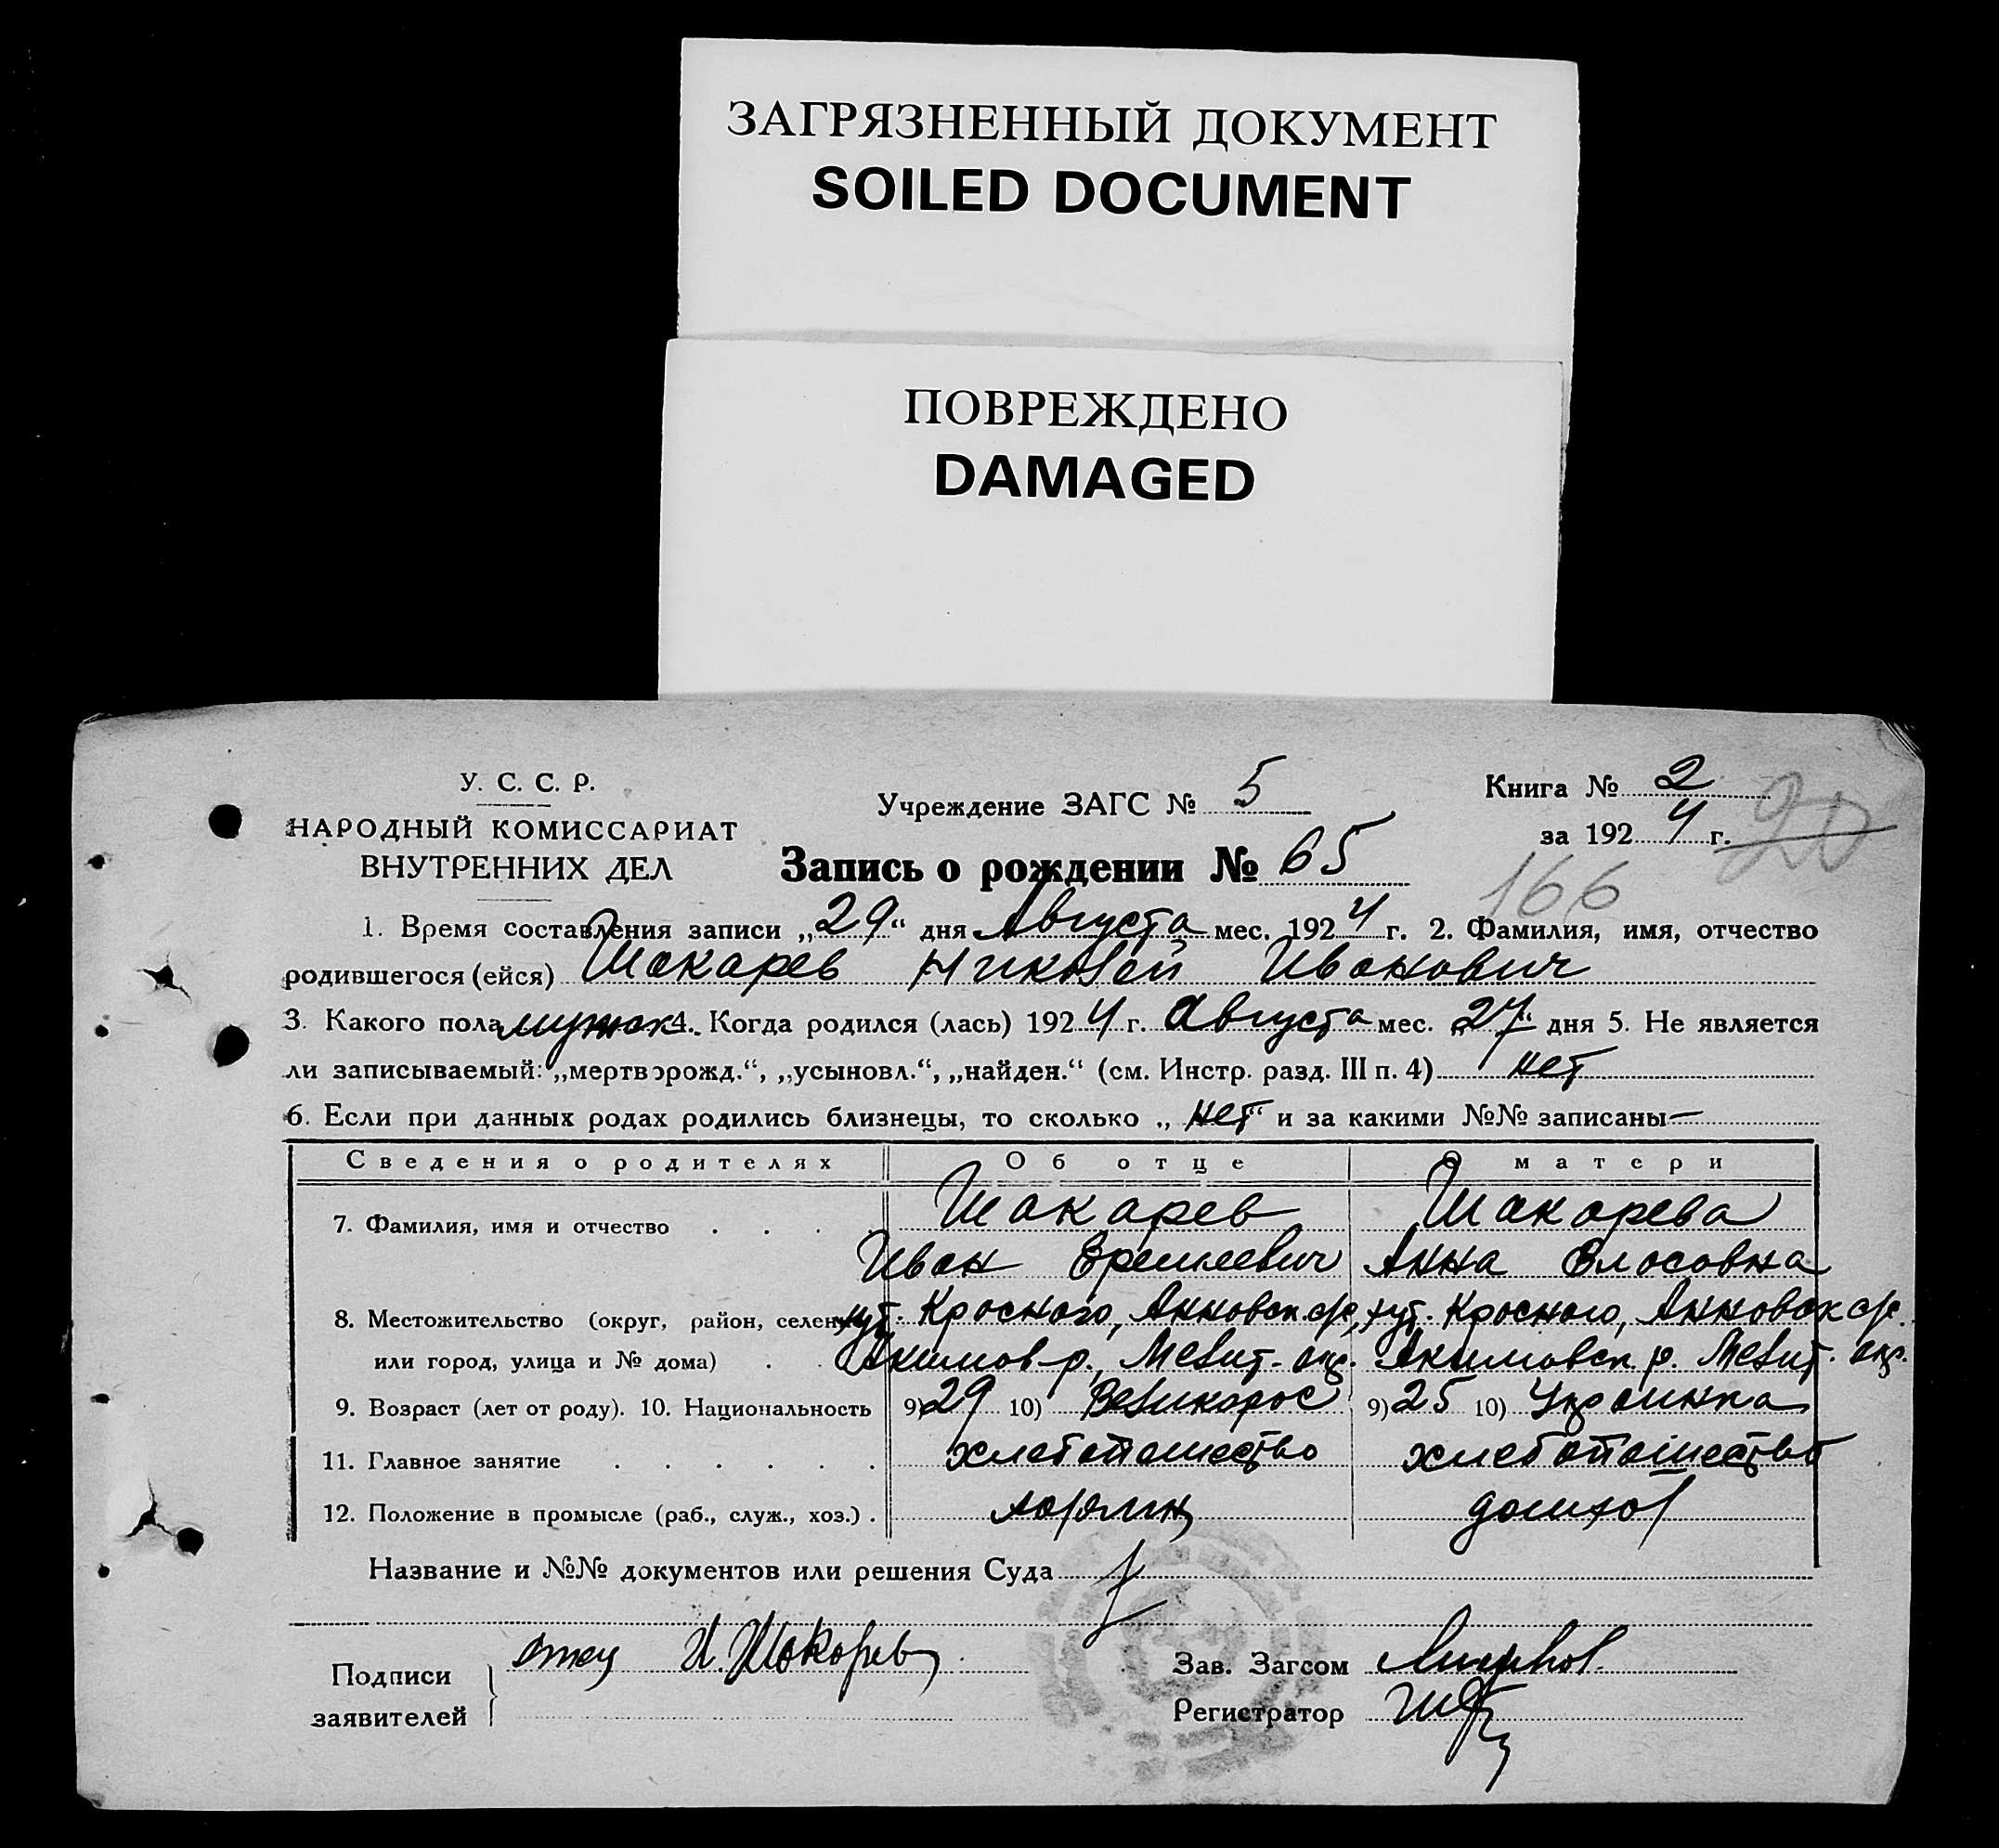 ЗАГРЯЗНЕННЫЙ ДОКУМЕНТ
SOILED DOCUMENT
ПОВРЕЖДЕНО
DAMAGED
У. С. С. Р.
НАРОДНЫЙ КОМИССАРИАТ
ВНУТРЕННИХ ДЕЛ
Учреждение ЗАГС № 5
Книга № 2
за 1924 г.
20
Запись о рождении № 65
166
1. Время составления записи „29“ дня Августа мес. 1924 г. 2. Фамилия, имя, отчество
родившегося (ейся) Шакарев Николай Иванович
3. Какого пола мужск 4. Когда родился (лась) 1924 г. Августа мес. „27“ дня 5. Не является
ли записываемый: „мертворожд.“, „усыновл.“, „найден.“ (см. Инстр. разд. III п. 4) нет
6. Если при данных родах родились близнецы, то сколько „нет“ и за какими №№ записаны —
Сведения о родителях Об отце О матери
7. Фамилия, имя и отчество . . . Шакарев Шакарева
Иван Еремеевич Анна Власовна
8. Местожительство (округ, район, селение хут. Красного, Анновск. с/с, хут. Красного, Анновск с/с.
или город, улица и № дома) . . Акимов р. Мелит. окр. Акимовск р. Мелит. окр.
9. Возраст (лет от роду). 10. Национальность 9) 29 10) Великорос 9) 25 10) Украинка
11. Главное занятие . . . . . . хлебопашество хлебопашество
12. Положение в промысле (раб., служ., хоз.) . хозяин домхоз
Название и №№ документов или решения Суда
Подписи
заявителей
отец И. Шакарев
Зав. Загсом
Регистратор